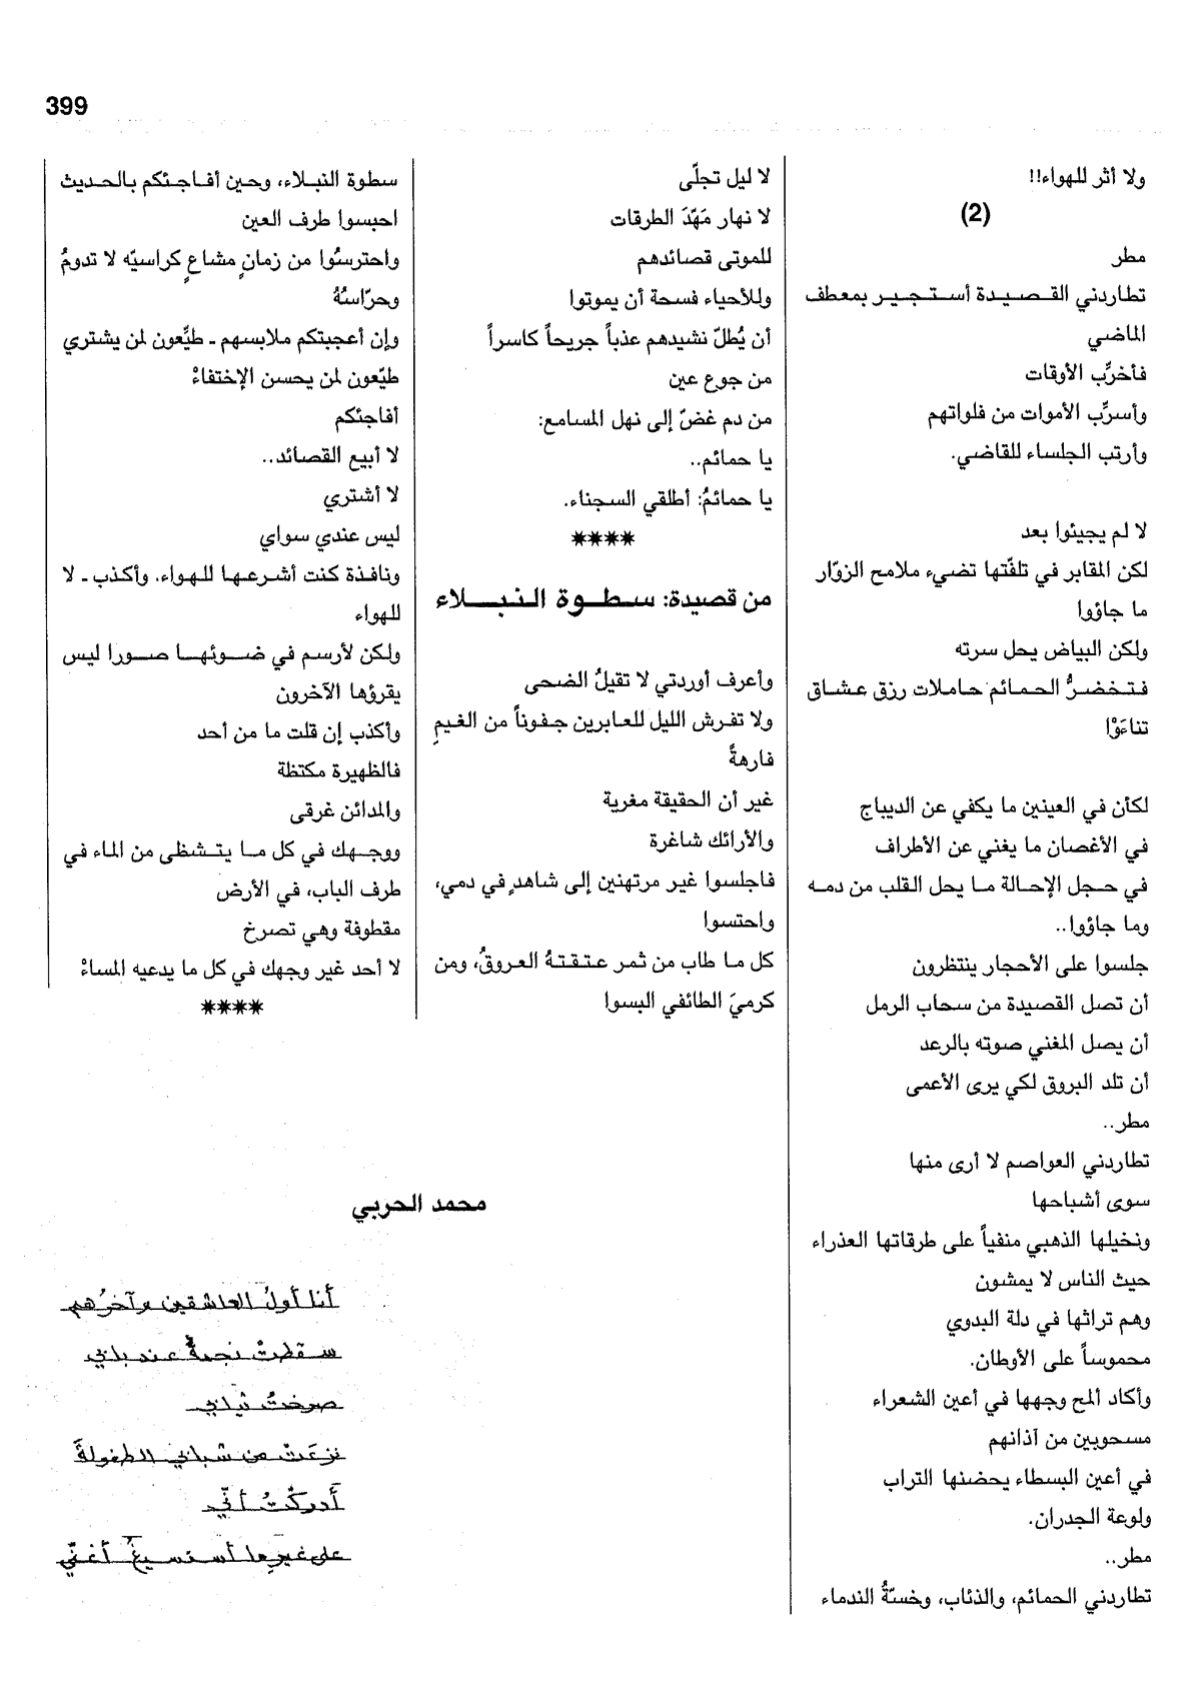 399
ولا أثر للهواء!!
(2)
مطر
تطاردني القصيدة أستجير بمعطف
الماضي
فأخرِّب الأوقات
وأسرِّب الأموات من فلواتهم
وأرتب الجلساء للقاضي.
لا لم يجيئوا بعد
لكن المقابر في تلفّتها تضيء ملامح الزوّار
ما جاؤوا
ولكن البياض يحل سرته
فتخضرُّ الحمائم حاملات رزق عشاق
تناءَوْا
لكأن في العينين ما يكفي عن الديباج
في الأغصان ما يغني عن الأطراف
في حجل الإحالة ما يحل القلب من دمه
وما جاؤوا..
جلسوا على الأحجار ينتظرون
أن تصل القصيدة من سحاب الرمل
أن يصل المغني صوته بالرعد
أن تلد البروق لكي يرى الأعمى
مطر..
تطاردني العواصم لا أرى منها
سوى أشباحها
ونخيلها الذهبي منفياً على طرقاتها العذراء
حيث الناس لا يمشون
وهم تراثها في دلة البدوي
محموساً على الأوطان.
وأكاد ألمح وجهها في أعين الشعراء
مسحوبين من آذانهم
في أعين البسطاء يحضنها التراب
ولوعة الجدران.
مطر..
تطاردني الحمائم، والذئاب، وخسّةُ الندماء
لا ليل تجلّى
لا نهار مَهّدَ الطرقات
للموتى قصائدهم
وللأحياء فسحة أن يموتوا
أن يُطلّ نشيدهم عذباً جريحاً كاسراً
من جوع عين
من دم غضّ إلى نهل المسامع:
يا حمائم..
يا حمائمُ: أطلقي السجناء.
****
من قصيدة: سطوة النبلاء
وأعرف أوردتي لا تقيلُ الضحى
ولا تفرش الليل للعابرين جفوناً من الغيمِ
فارهةً
غير أن الحقيقة مغرية
والأرائك شاغرة
فاجلسوا غير مرتهنين إلى شاهدٍ في دمي،
واحتسوا
كل ما طاب من ثمر عتقتهُ العروقُ، ومن
كرميَ الطائفي البسوا
سطوة النبلاء، وحين أفاجئكم بالحديث
احبسوا طرف العين
واحترسُوا من زمانٍ مشاعٍ كراسيّه لا تدومُ
وحرّاسُهُ
وإن أعجبتكم ملابسهم ـ طيِّعون لمن يشتري
طيّعون لمن يحسن الإختفاءْ
أفاجئكم
لا أبيع القصائد..
لا أشتري
ليس عندي سواي
ونافذة كنت أشرعها للهواء، وأكذب ـ لا
للهواء
ولكن لأرسم في ضوئها صورا ليس
يقرؤها الآخرون
وأكذب إن قلت ما من أحد
فالظهيرة مكتظة
والمدائن غرقى
ووجهك في كل ما يتشظى من الماء في
طرف الباب، في الأرض
مقطوفة وهي تصرخ
لا أحد غير وجهك في كل ما يدعيه المساءْ
****
محمد الحربي
أنا أولُ العاشقين وآخرُهم
سقطتْ نجمةٌ عند بابي
صرختُ ثيابي
نزعَتْ من شبابي الطفولةَ
أدركْتُ أنّي
على غيرِ ما أستسيغُ أغنّي